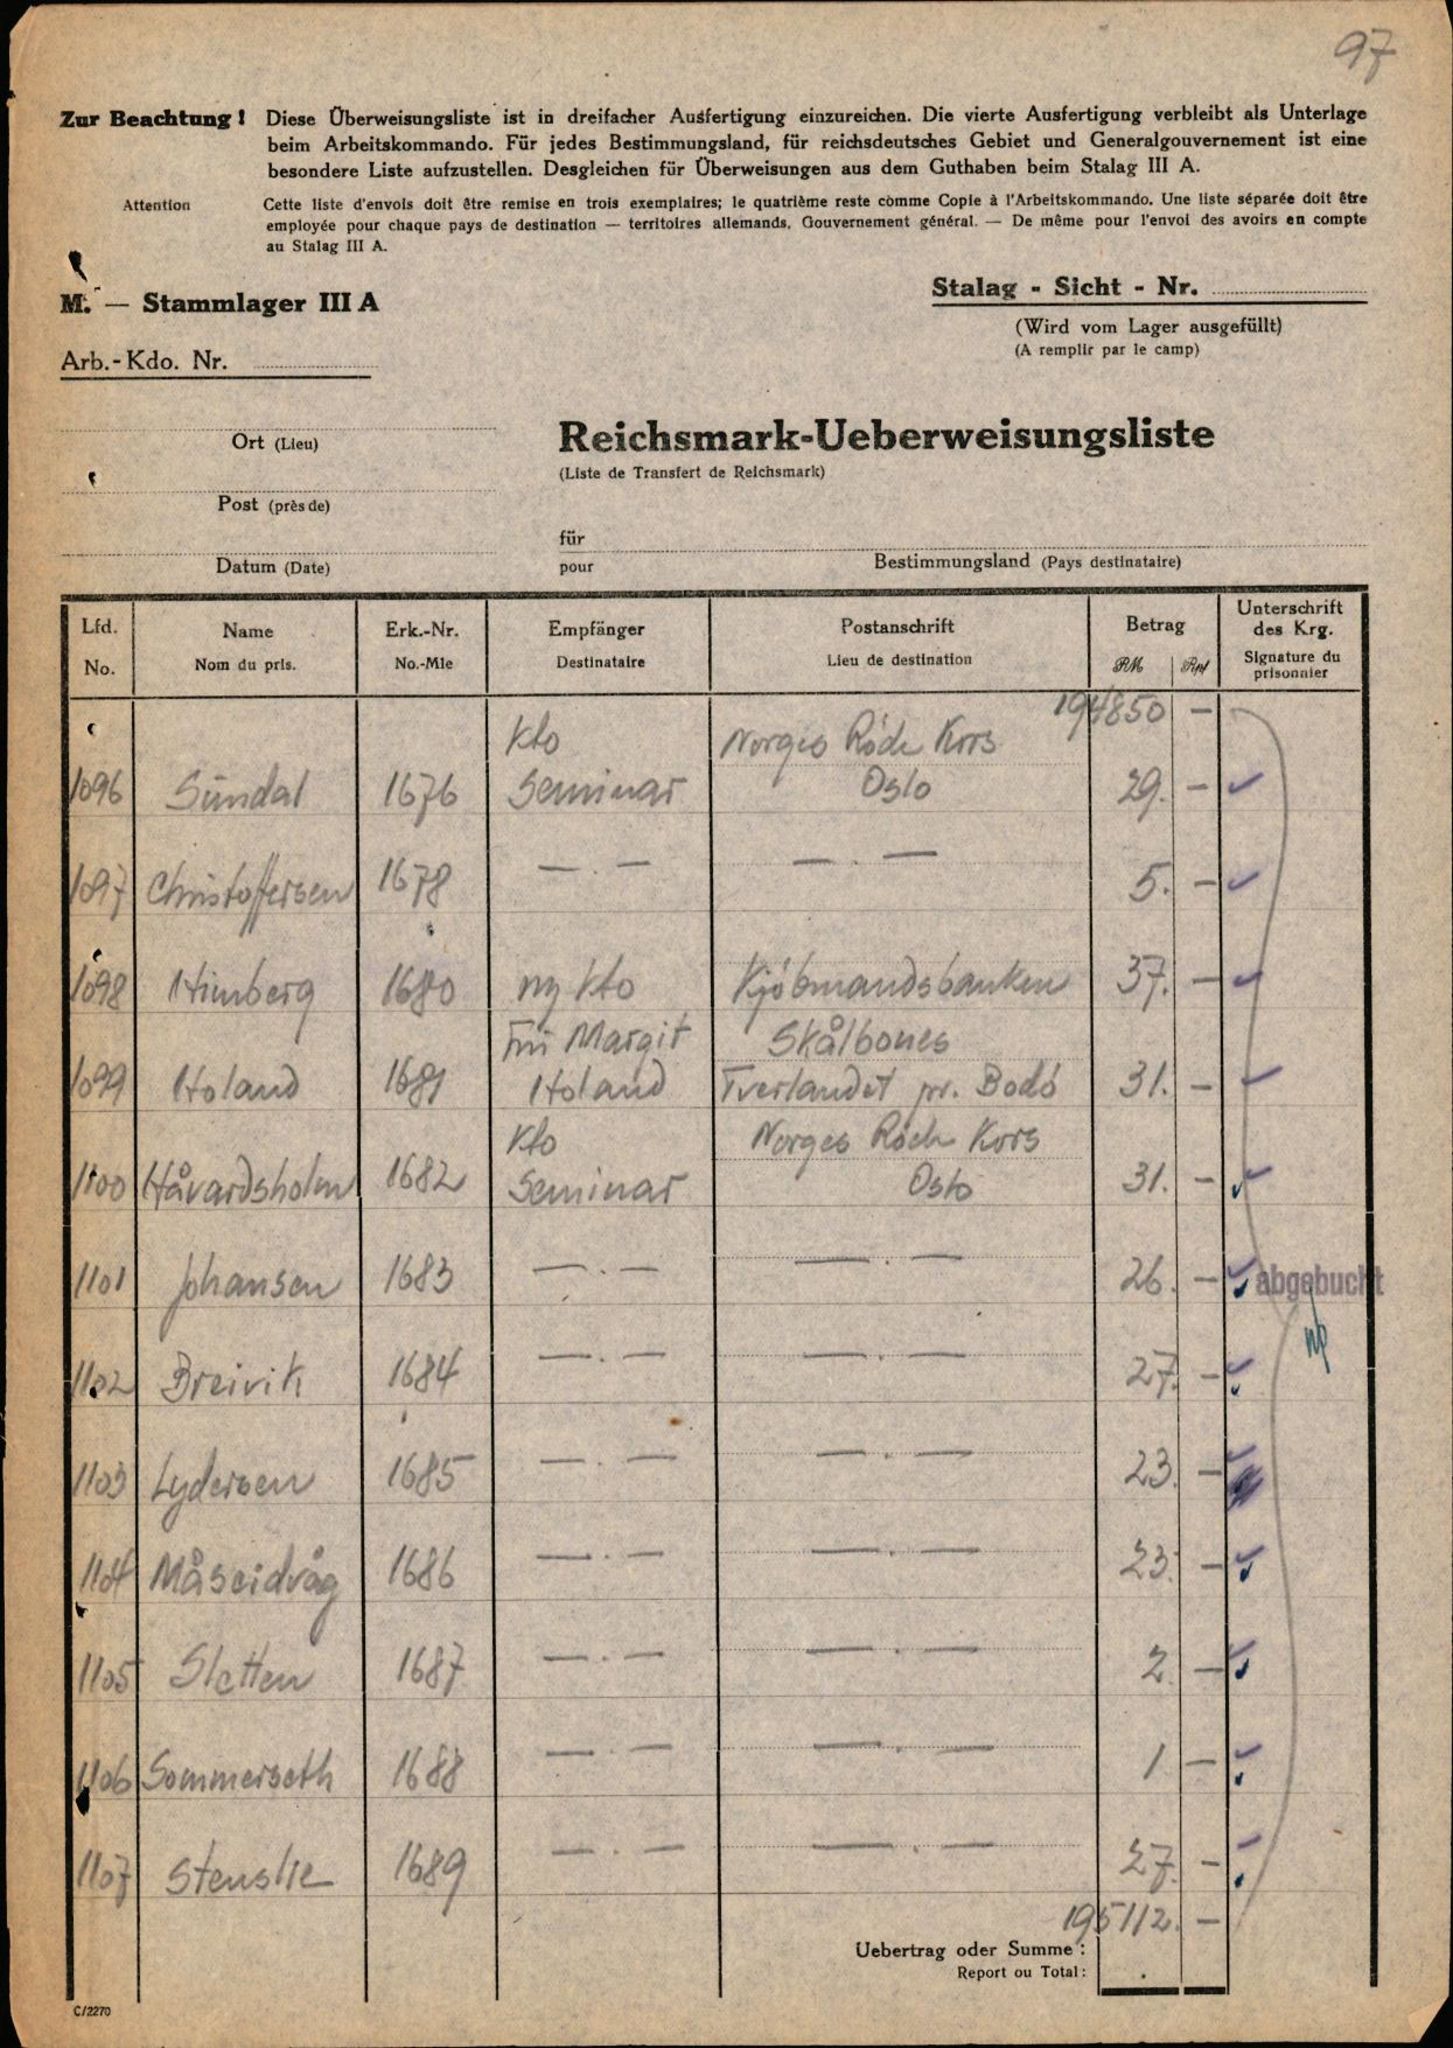 97
Zur Beachtung! Diese Überweisungsliste ist in dreifacher Ausfertigung einzureichen. Die vierte Ausfertigung verbleibt als Unterlage
beim Arbeitskommando. Für jedes Bestimmungsland, für reichsdeutsches Gebiet und Generalgouvernement ist eine
besondere Liste aufzustellen. Desgleichen für Überweisungen aus dem Guthaben beim Stalag III A.
Attention Cette liste d'envois doit être remise en trois exemplaires; le quatrième reste comme Copie à l'Arbeitskommando. Une liste séparée doit être
employée pour chaque pays de destination — territoires allemands, Gouvernement général. — De même pour l'envoi des avoirs en compte
au Stalag III A.
M. — Stammlager III A
Stalag - Sicht - Nr.
(Wird vom Lager ausgefüllt)
(A remplir par le camp)
Arb.-Kdo. Nr.
Ort (Lieu)
Reichsmark-Ueberweisungsliste
(Liste de Transfert de Reichsmark)
Post (près de)
für
pour
Bestimmungsland (Pays destinataire)
Datum (Date)
Lfd. Name Erk.-Nr. Empfänger Postanschrift Betrag Unterschrift des Krg.
No. Nom du pris. No.-Mle Destinataire Lieu de destination RM Rpf Signature du prisonnier
194850 —
Kto Norges Röde Kors
1096 Sündal 1676 Seminar Oslo 29. —
1097 Christoffersen 1678 — . — — . — 5. —
1098 Himberg 1680 ny Kto Kjöbmandsbanken 37. —
Margit Skålbones
1099 Holand 1681 Holand Tverlandet pr. Bodö 31. —
Kto Norges Röde Kors
1100 Håvardsholm 1682 Seminar Oslo 31. —
1101 Johansen 1683 — . — — . — 26. —
abgebucht
1102 Breivik 1684 — . — — . — 27. —
1103 Lydersen 1685 — . — — . — 23. —
1104 Måseidvåg 1686 — . — — . — 23. —
1105 Sletten 1687 — . — — . — 2 —
1106 Sommerseth 1688 — . — — . — 1 —
1107 Stenslie 1689 — . — — . — 27. —
195112. —
Uebertrag oder Summe:
Report ou Total:
C/2270